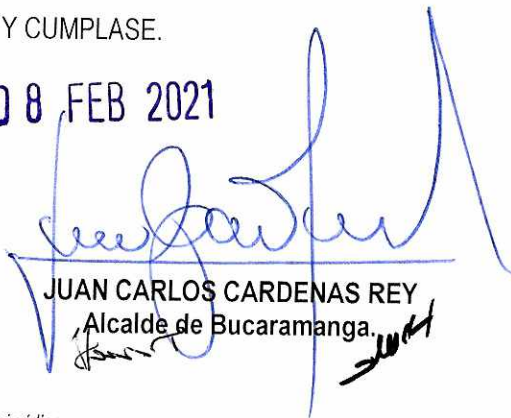 Y CUMPLASE.
08 FEB 2021
JUAN CARLOS CARDENAS REY
Alcalde de Bucaramanga.